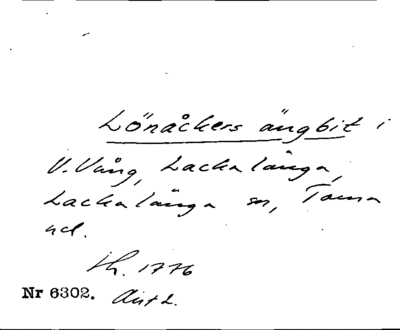 Lönåkers ängbit i
V. Vång, Lackalänga,
Lackalänga sn, Torna
hd.
Sk. 1776
Nr 6302. Avt 2.